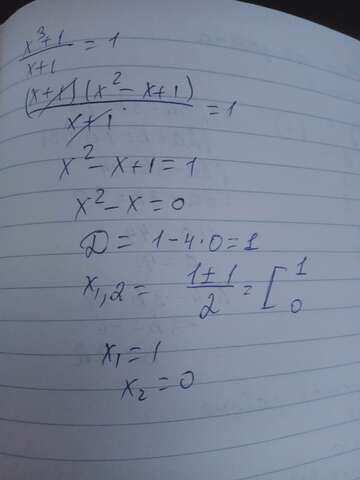 x³+1/x+1 = 1
(x+1)(x²-x+1)/x+1 = 1
x²-x+1=1
x²-x=0
D = 1-4·0=1
x₁,₂ = 1±1/2 = [1 0
x₁=1
x₂=0